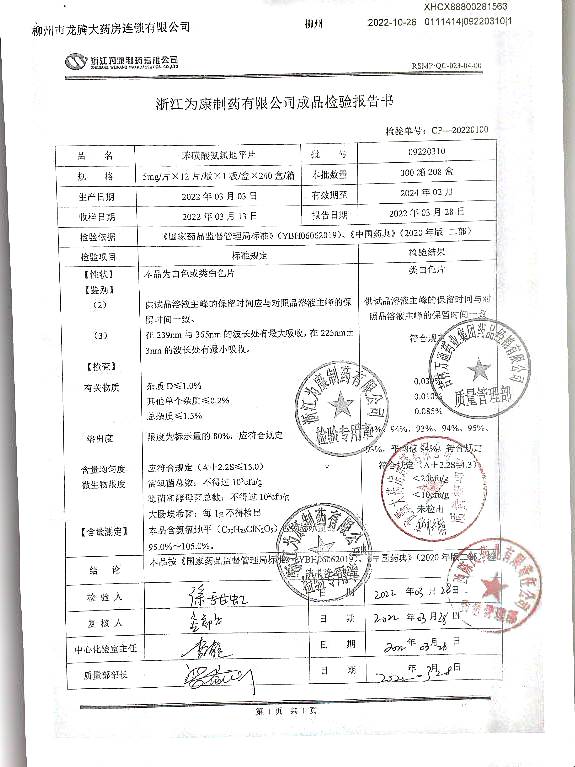 XHCX88800281563
柳州市龙牌大药房连锁有限公司 柳州 2022-10-26 0111414|09220310|1
浙江为康制药有限公司
ZHEJIANG WEIKANG PHARMACEUTICAL CO.,LTD
RSMP·QC-023-04-00
浙江为康制药有限公司成品检验报告书
检验单号：CP—20220100
品 名 苯磺酸氨氯地平片 批 号 09220310
规 格 5mg/片×12片/板×1板/盒×240盒/箱 本批数量 300箱208盒
生产日期 2022年03月03日 有效期至 2024年02月
收样日期 2022年03月13日 报告日期 2022年03月28日
检验依据 《国家药品监督管理局标准》（YBH06062019）、《中国药典》（2020年版二部）
检验项目 标准规定 检验结果
【性状】 本品为白色或类白色片 类白色片
【鉴别】
（2） 供试品溶液主峰的保留时间应与对照品溶液主峰的保留时间一致。 供试品溶液主峰的保留时间与对照品溶液主峰的保留时间一致
（3） 在239nm与365nm的波长处有最大吸收，在225nm±3nm的波长处有最小吸收。 符合规定
【检查】
有关物质 杂质D≤1.0%
其他单个杂质≤0.2% 0.010%
总杂质≤1.5% 0.085%
溶出度 限度为标示量的80%，应符合规定 94%、93%、94%、95%、
平均值94%，符合规定
含量均匀度 应符合规定（A＋2.2S≤15.0） 符合规定
微生物限度 需氧菌总数：不得过10³cfu/g
霉菌和酵母菌总数：不得过10²cfu/g <10cfu/g
大肠埃希菌：每1g不得检出 未检出
【含量测定】 本品含氨氯地平（C₂₀H₂₅ClN₂O₅）
95.0%～105.0%。
结 论 本品按《国家药品监督管理局标准》（YBH06062019）、《中国药典》（2020年版二部）
检 验 人 日 期 2022年03月28日
复 核 人 日 期 2022年03月28日
中心化验室主任 日 期 2022年03月28日
质量部部长 日 期 2022年03月28日
浙江为康制药有限公司
检验专用章
吉林万通药业集团药品经销有限公司
质量管理部
浙江为康制药有限公司
第 1 页 共 1 页